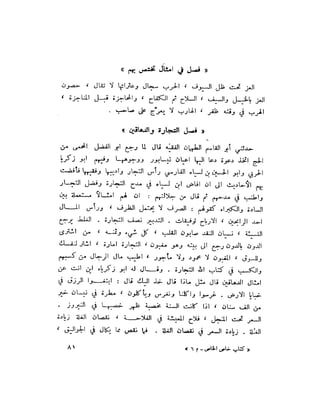 « فصل في امثال تختص بهم »
العز تحت ظل السيوف ، الحرب سجال وعثراتها لا تقال ، حصون
العز بالخيل والسيف ، السلاح ثم الكفاح ، والمحاجزة قبل المناجزة ،
الحرب في وقته ظفر ، الهارب لا يعرّج على صاحب .
« فصل التجارة والدهاقين »
حدثني أبو القاسم الفقيه قال لما رجع ابو الفضل من
الحج اتخذ دعوة دعا اليها اعيان نيسابور ووجوهها وفيهم ابو زكريا
الحربي وابو الحسين بن لسياه الفارسي رأس التجار واديبها وفقيهها فأفضت
بهم الأحاديث الى ان افاض ابن لسياه في مدح التجارة وفضل التجار
واطنب في مدحهم ثم قال من جلالتهم : ان لهم امثالاً مستعملة بين
السادة والكبراء كقولهم : الصرف لا يحتمل الظرف ، ورأس المال
احد الرابحين ، الارباح توفيقات . التدبير نصف التجارة . الغلط يرجع
النسيئة ، نسيان النقد صابون القلب ، كل شيء وثمنه ، من اشترى
الدون بالدون رجع الى بيته وهو مغبون ، التجارة امارة ، اشتر لنفسك
وللسوق ، المغبون لا محمود ولا مأجور ، اطيب مال الرجال من كسبهم
والكسب في كتاب الله التجارة . وقال له ابو زكرياء اين انت عن
امثال الدهاقين قال مثل ماذا قال خذ اليك قال : ابتغوا الرزق في
خبايا الارض . غرسوا واكلنا ونغرس ويأكلون ، مطرة في نيسان خير
من الف سنان ، اذا كانت السنة مخصبة ظهر خصبها في النيروز .
السعر تحت المنجل ، فلاح المعيشة في الفلاحة ، نقصان الغلة زيادة
الغلة . زيادة السعر في نقصان الغلة . فما نقص مما يكال في الجواليق ،
« كتاب خاص الخاص - م ٦ »
٨١